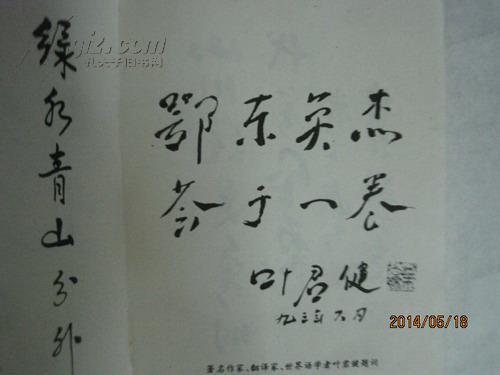 绿水青山分外
鄂东英杰
荟于一卷
叶君健
九三年六月
著名作家、翻译家、世界语学者叶君健题词
2014/05/18
孔夫子旧书网